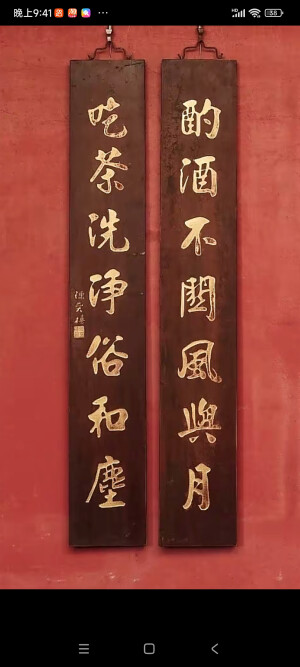 晚上9:41
138
酌酒不関風與月
吃茶洗淨俗和塵